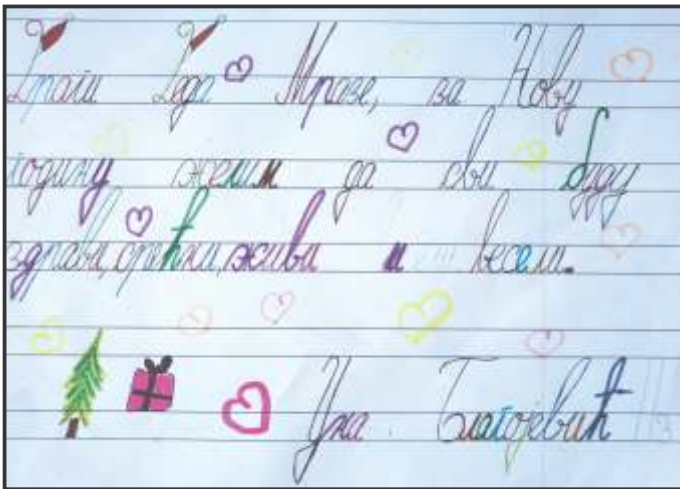 Драги Деда Мразе, за Нову
годину желим да сви буду
здрави, срећни, живи и весели.
Уна Благојевић